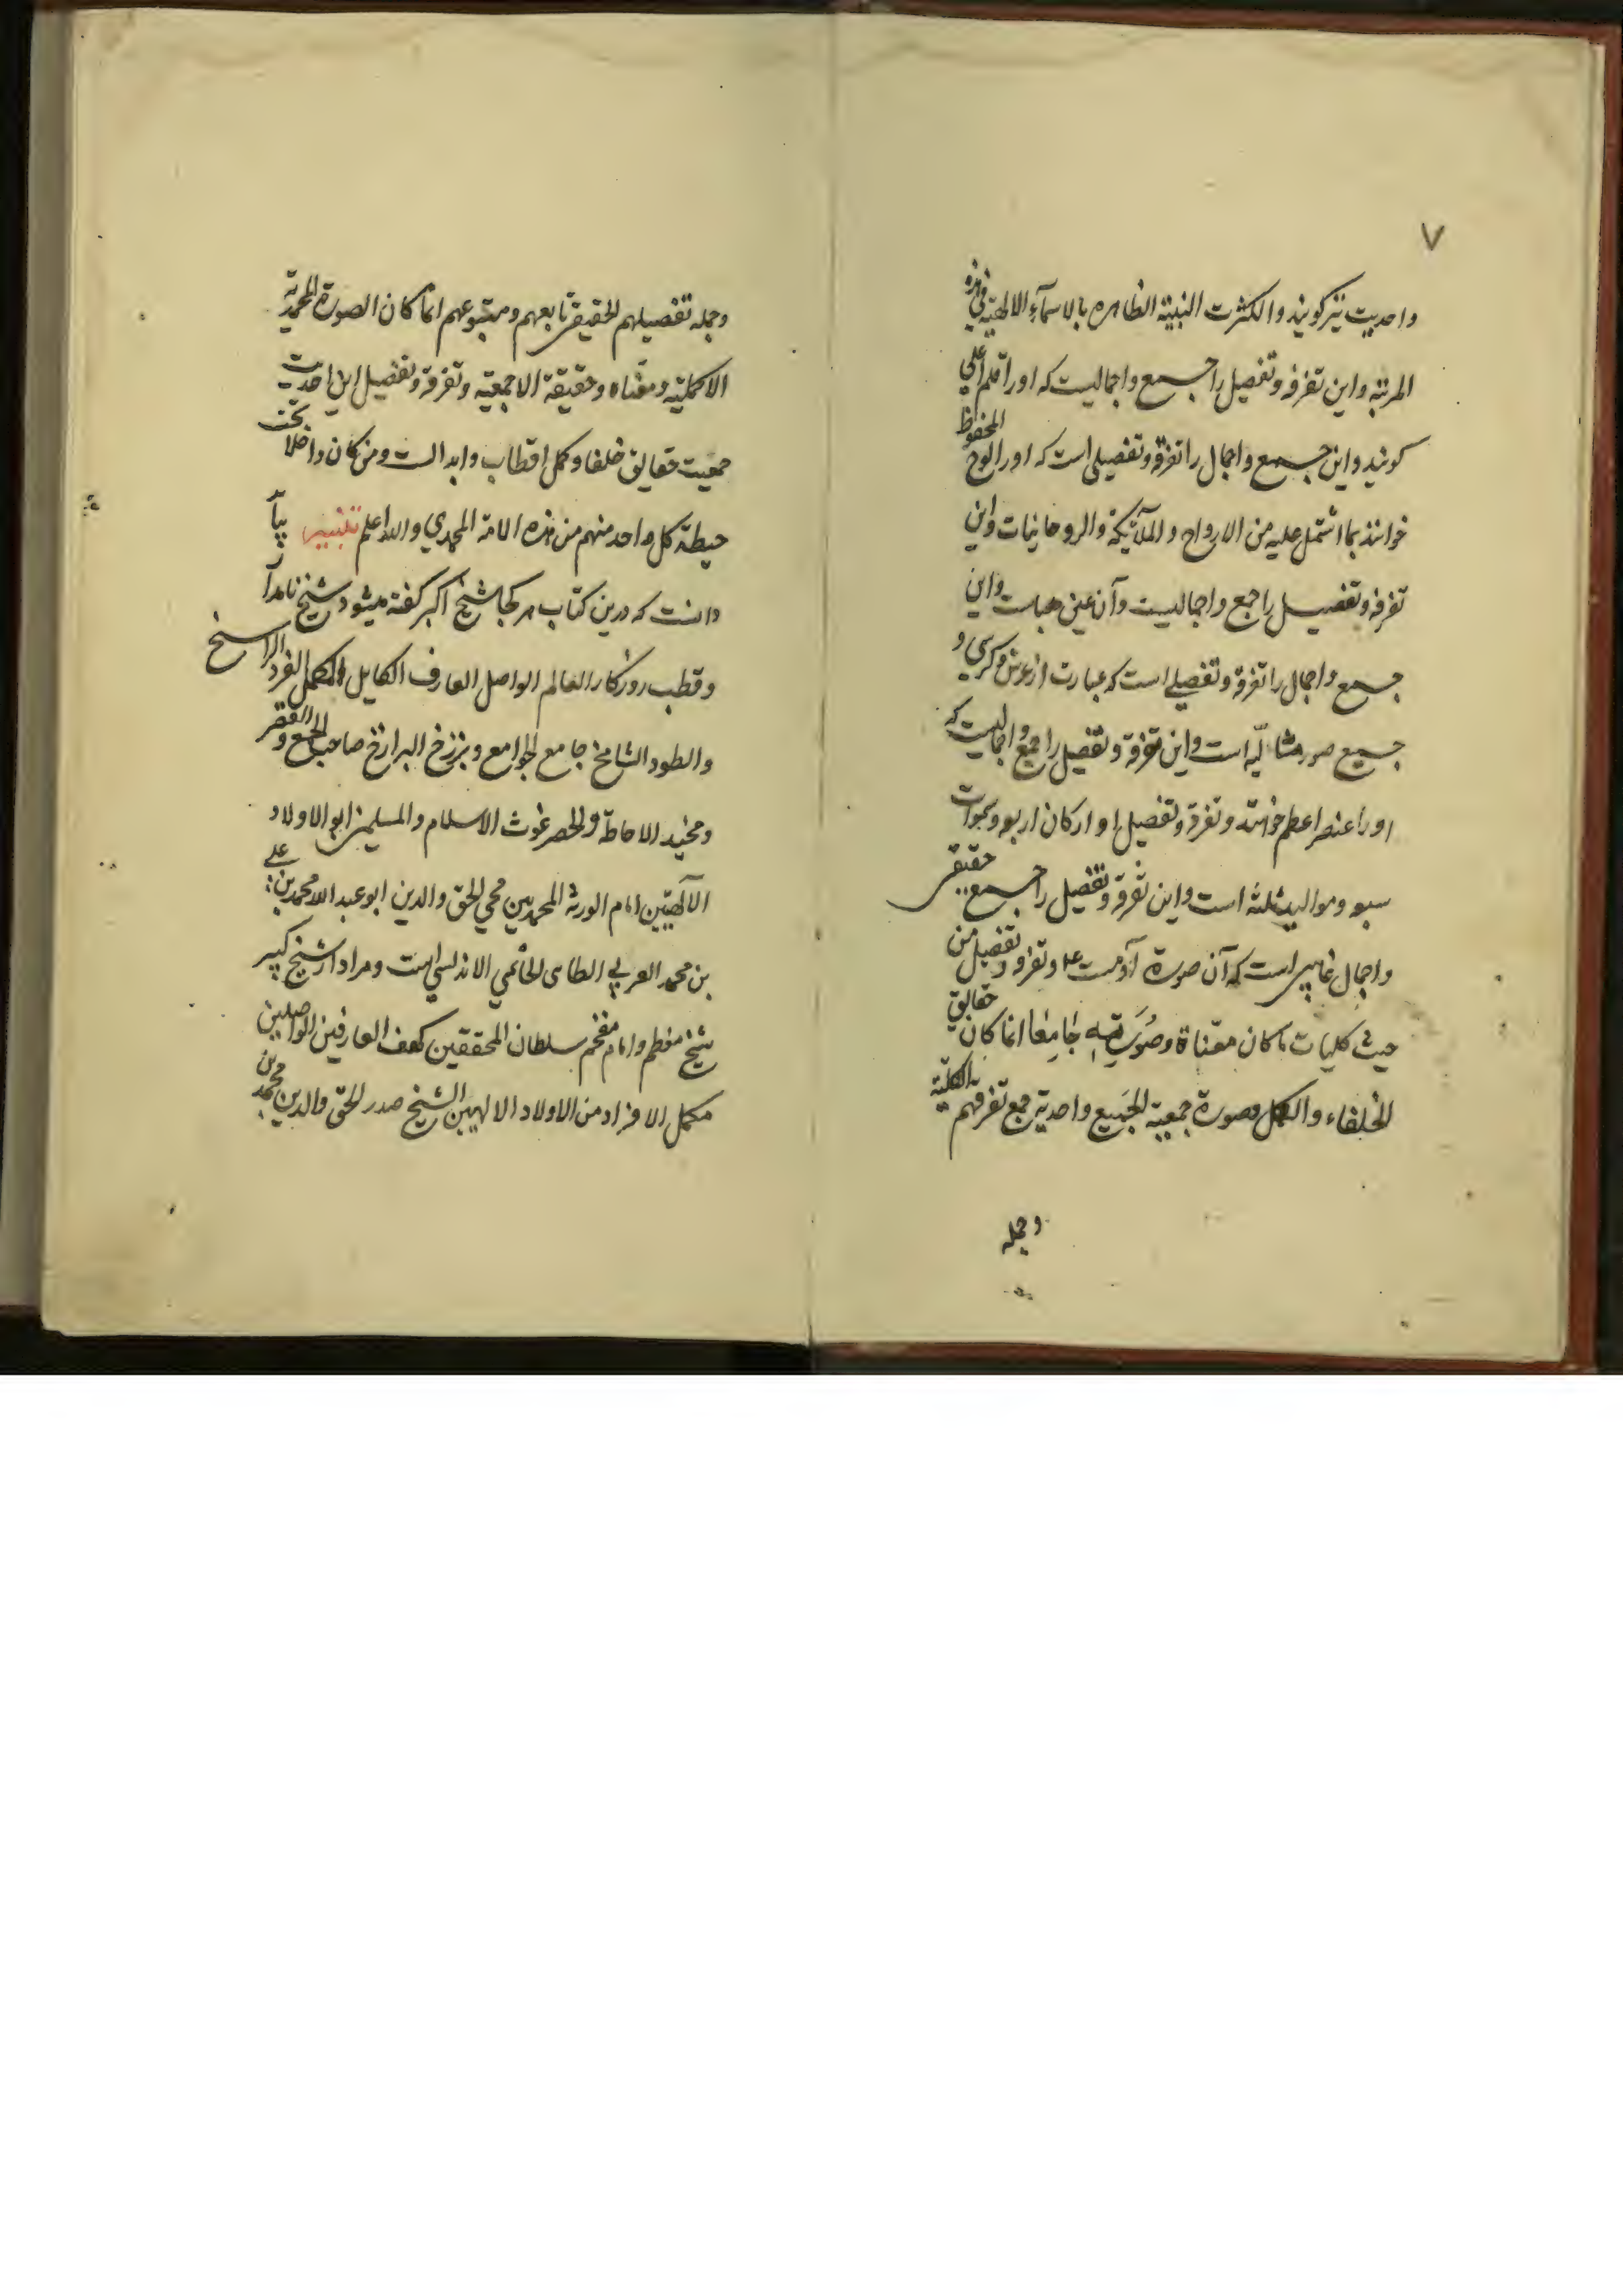 ٧
واحدیت نیز کویند والکثرت النسبیة الظاهره بالاسمآء الالهیة فی هذه
المرتبه واین تفرقه وتفصیل را جمع واجمالیست که اورا قلم اعلی
کویند واین جمع واجمال را تفرقه وتفصیلی است که اورا لوح المحفوظ
خوانند بما اشتمل علیه من الارواح والملآئیکة والروحانیات واین
تفرقه وتفصیل را جمع واجمالیست وآن عین هباست واین
جمع واجمال را تفرقة وتفصیلے است که عبارت از عرش وکرسی و
جمیع صور مثالیّه است واین تفرقة وتفصیل را جمع واجمالیست که
اورا عنصر اعظم خوانند وتفرقة وتفصیل او ارکان اربعه وسموات
سبعه وموالید ثلثه است واین تفرقة وتفصیل را جمع حقیقی
واجمال غایی است که آن صورة آدمست ع‍م وتفرقه وتفصیل من
حیث کلیات ما کان معناة وصورته جامعا انما کان حقایق
الخلفاء والکمل وصورة جمعیة الجمیع واحدیة جمع تفرقهم بالکلّیة
وجمله
وجمله تفصیلهم الحقیقی تابعهم ومتبوعهم انما کان الصورة المحمدیة
الاکملیّه ومعناه وحقیقة الاجمعیّه وتفرقة وتفصیل این احدیت
جمعیت حقایق خلفا وکمل اقطاب وابدالست ومن کان داخلا تحت
حیطة کل واحد منهم من هذه الامة المحمدی والله اعلم تنبیه بباید
دانست که درین کتاب هر کجا شیخ اکبر کفته میشود شیخ نامدار
وقطب روزکار العالم الواصل العارف الکامل المکمل الفرد الراسخ
والطود الشامخ جامع الجوامع وبرزخ البرازخ صاحب الجمع والفقر
ومخید الاحاطة والحصر غوث الاسلام والمسلمین ابو الاولاد
الآلهیّین امام الورثة المحمدیین محی الحق والدین ابو عبد الله محمد بن علی
بن محمد العربی الطائی الحاتمی الاندلسی است ومراد از شیخ کبیر
شیخ معظم وامام مفخم سلطان المحققین کهف العارفین الواصلین
مکمل الافراد من الاولاد الالهیین الشیخ صدر الحق والدین محمد بن